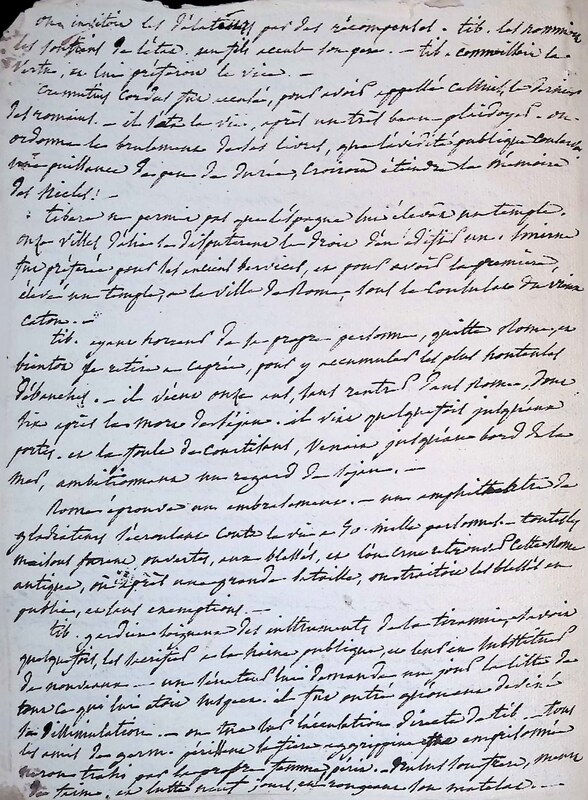 on invitoit les délateurs par des récompenses. - tib. les nommoit
les soutiens de l'état. un fils accusa son père. - tib. connoissoit la
vertu, en lui préférant le vice. -
Cremutius Cordus fut accusé, pour avoir appellé Cassius, le dernier
des romains. - il la vie, après un très beau plaidoyer. on
ordonna le brulement de ses livres, que l'avidité publique
puissance de peu de durée, croirou éteindre la mémoire
des siecles! -
tibere ne permit pas que l'espagne lui élevât un temple.
onze villes d'asie se disputerent le droit d'en édifier un. Smirne
fut préférée pour ses anciens services, et pour avoir la premiere,
élevé un temple, a la ville de Rome, sous le Consulat du vieux
caton. -
tib. ayant horreur de sa propre personne, quitte Rome, et
bientot se retire a caprée, pour y accumuler les plus honteuses
débauches. - il vécut onze ans, sans rentrer dans Rome, dont
six après la mort de séjan. il vint quelquefois jusqu'aux
portes. et la foule de courtisans, venoit jusqu'au bord de la
mer, ambitionnant un regard de séjan. -
Rome éprouva un embrasement. - un amphithéâtre de
gladiateurs s'écroulant couta la vie a 50. mille personnes. - toutes les
maisons furent ouvertes, aux blessés, et l'on crut être dans cette Rome
antique, où après une grande bataille, on traitoit les blessés en
public, et leurs
tib. gardien soigneux des instruments de la tirannie, savoit
quelquefois, les sacrifier a la haine publique, et leur en substituer
de nouveaux - un sénateur lui demanda un jour la liste de
tout ce qui lui étoit suspect. il fut outré qu'on eut deviné
sa dissimulation. - on tua sur l'accusation directe de tib. - tous
les amis de germ. périssent la fiere aggrippine emprisonnée
néron trahi par sa propre femme périt. - Drusus son frere, meurt
de faim, en lutte neuf jours, en rongeant son matelas. -